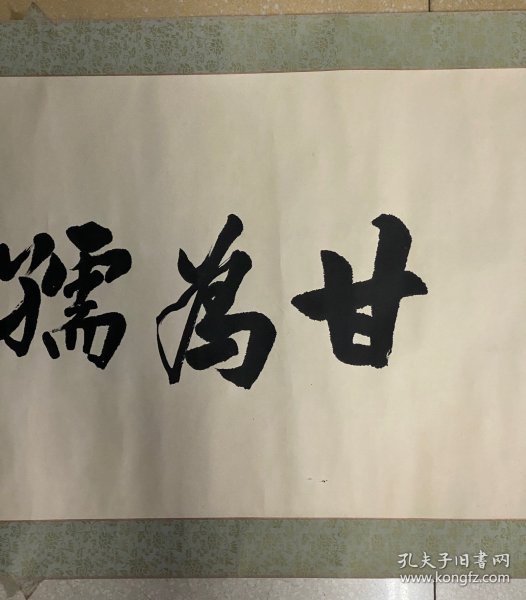 甘為孺
孔夫子旧书网
www.kongfz.com